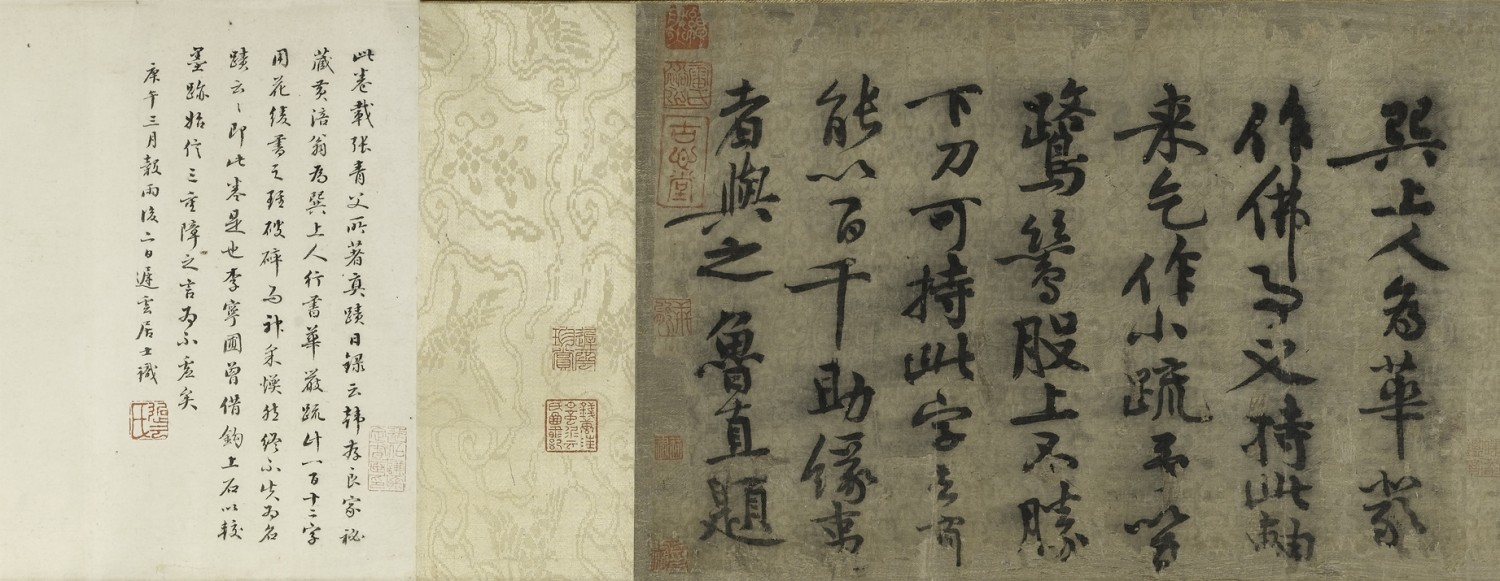 巽上人為華嚴
作佛事又持此軸
来乞作小疏予笑
鷺鷥股上不勝
下刀可持此字去有
能以百千助緣來
者與之魯直題
此卷載張青父所著真蹟日錄云韓存良家秘
藏黃涪翁為巽上人行書華嚴疏計一百十二字
用花綾書之雖破碎而神采煥然終不失為名
蹟云〻即此卷是也李寧圃曾借鈎上石以較
墨跡始信三重障之言為不虛矣
庚午三月穀雨後二日遲雲居士識